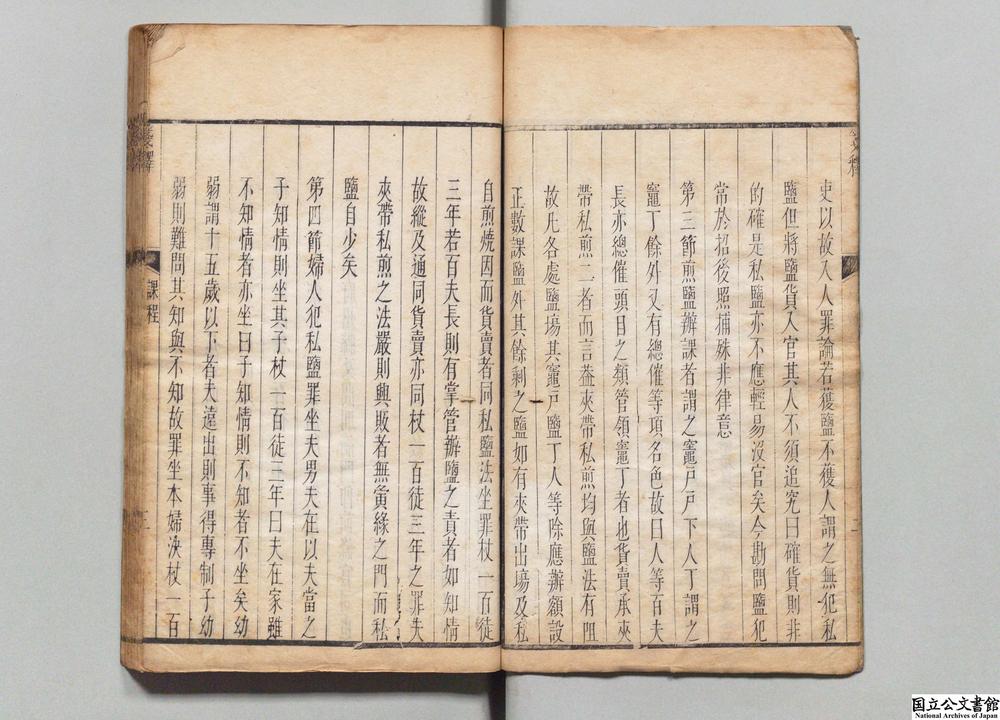 史以故入人罪論若獲鹽不獲人謂之無犯私
鹽但將鹽貨入官其人不須追究曰確貨則非
的確是私鹽亦不應輕易沒官矣今勘問鹽犯
常於招後照捕殊非律意
第三節煎鹽辦課者謂之竈戶戶下人丁謂之
竈丁餘外又有總催等項名色故曰人等百夫
長亦總催頭目之類管領竈丁者也貨賣承夾
帶私煎二者而言葢夾帶私煎均與鹽法有阻
故凡各處鹽場其竈戶鹽丁人等除應辦額設
正數課鹽外其餘剩之鹽如有夾帶出場及私
自煎燒因而貨賣者同私鹽法坐罪杖一百徒
三年若百夫長則有掌管辦鹽之責者如知情
故縱及通同貨賣亦同杖一百徒三年之罪夫
夾帶私煎之法嚴則興販者無夤緣之門而私
鹽自少矣
第四節婦人犯私鹽罪坐夫男夫在以夫當之
子知情則坐其子杖一百徒三年曰夫在家雖
不知情者亦坐曰子知情則不知者不坐矣幼
弱謂十五歲以下者夫遠出則事得專制子幼
弱則難問其知與不知故罪坐本婦決杖一百
課程
二
三
國立公文書館
National Archives of Japan